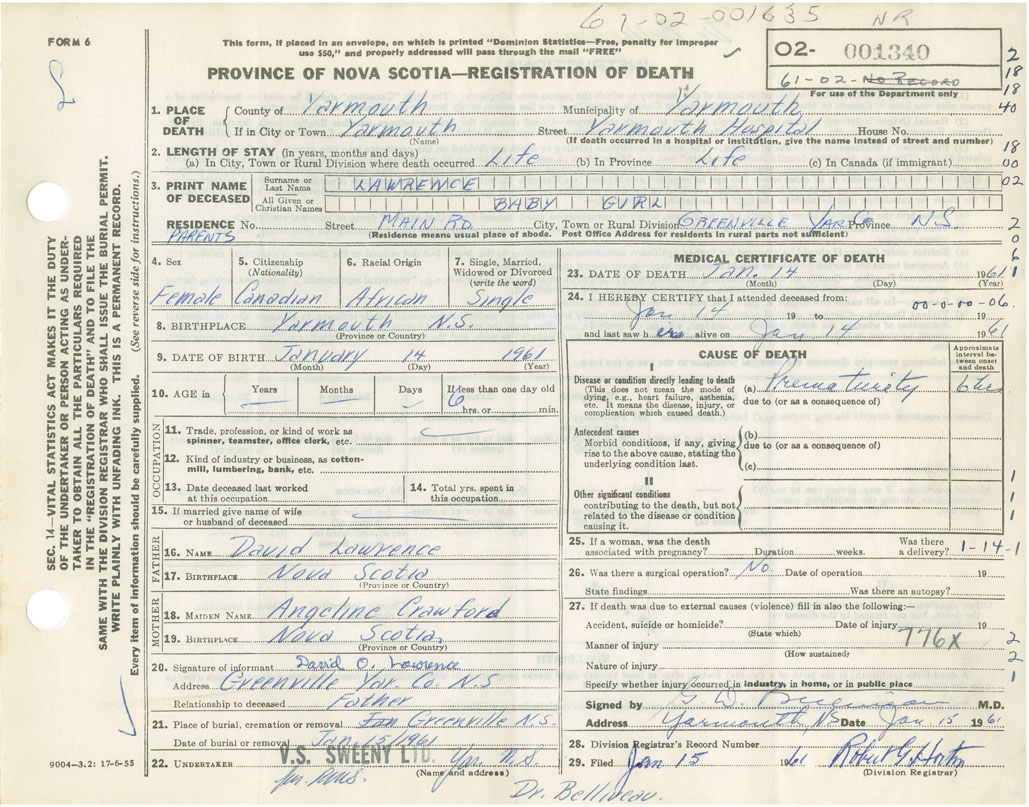 61-02-001635 NR
FORM 6
This form, if placed in an envelope, on which is printed "Dominion Statistics—Free, penalty for improper
use $50," and properly addressed will pass through the mail "FREE"
02- 001340
61-02-No Record
For use of the Department only
PROVINCE OF NOVA SCOTIA—REGISTRATION OF DEATH
2
18
18
40
18
00
02
2
0
6
1
SEC. 14—VITAL STATISTICS ACT MAKES IT THE DUTY
OF THE UNDERTAKER OR PERSON ACTING AS UNDER-
TAKER TO OBTAIN ALL THE PARTICULARS REQUIRED
IN THE "REGISTRATION OF DEATH" AND TO FILE THE
SAME WITH THE DIVISION REGISTRAR WHO SHALL ISSUE THE BURIAL PERMIT.
WRITE PLAINLY WITH UNFADING INK. THIS IS A PERMANENT RECORD.
Every item of information should be carefully supplied. (See reverse side for instructions.)
1. PLACE OF DEATH
County of Yarmouth Municipality of Yarmouth
If in City or Town Yarmouth Street Yarmouth Hospital House No.
(Name) (If death occurred in a hospital or institution, give the name instead of street and number)
2. LENGTH OF STAY (in years, months and days)
(a) In City, Town or Rural Division where death occurred Life (b) In Province Life (c) In Canada (if immigrant)
3. PRINT NAME OF DECEASED
Surname or Last Name LAWRENCE
All Given or Christian Names BABY GIRL
RESIDENCE No. Street MAIN RD City, Town or Rural Division GREENVILLE YAR. Co. Province N.S.
PARENTS (Residence means usual place of abode. Post Office Address for residents in rural parts not sufficient)
4. Sex 5. Citizenship (Nationality) 6. Racial Origin 7. Single, Married, Widowed or Divorced (write the word)
Female Canadian African Single
8. BIRTHPLACE Yarmouth N.S.
(Province or Country)
9. DATE OF BIRTH January 14 1961
(Month) (Day) (Year)
10. AGE in Years Months Days If less than one day old
6 hrs. or min.
OCCUPATION
11. Trade, profession, or kind of work as
spinner, teamster, office clerk, etc.
12. Kind of industry or business, as cotton-
mill, lumbering, bank, etc.
13. Date deceased last worked
at this occupation
14. Total yrs. spent in
this occupation
15. If married give name of wife
or husband of deceased
FATHER
16. NAME David Lawrence
17. BIRTHPLACE Nova Scotia
(Province or Country)
MOTHER
18. MAIDEN NAME Angeline Crawford
19. BIRTHPLACE Nova Scotia
(Province or Country)
20. Signature of informant David O. Lawrence
Address Greenville Yar. Co. N.S
Relationship to deceased Father
21. Place of burial, cremation or removal Greenville N.S.
Date of burial or removal Jan 15/1961
22. UNDERTAKER V.S. SWEENY LTD. Yar. N.S.
(Name and address)
9004—3.2: 17-6-55
Dr. Belliveau.
MEDICAL CERTIFICATE OF DEATH
23. DATE OF DEATH Jan. 14 1961
(Month) (Day) (Year)
24. I HEREBY CERTIFY that I attended deceased from: 00-0-00-06.
Jan 14 19 to 19
and last saw h er alive on Jan 14 1961
CAUSE OF DEATH
Approximate interval between onset and death
I
Disease or condition directly leading to death
(This does not mean the mode of
dying, e.g., heart failure, asthenia,
etc. It means the disease, injury, or
complication which caused death.)
(a) Prematurity 6 hrs
due to (or as a consequence of)
Antecedent causes
Morbid conditions, if any, giving
rise to the above cause, stating the
underlying condition last.
(b)
due to (or as a consequence of)
(c)
II
Other significant conditions
contributing to the death, but not
related to the disease or condition
causing it.
1
1
1
25. If a woman, was the death
associated with pregnancy? Duration weeks. Was there a delivery? 1-14-1
26. Was there a surgical operation? No. Date of operation 19
State findings Was there an autopsy?
27. If death was due to external causes (violence) fill in also the following:—
Accident, suicide or homicide? Date of injury 19
(State which)
776X
Manner of injury 2
(How sustained)
Nature of injury 2
Specify whether injury occurred in industry, in home, or in public place 1
Signed by M.D.
Address Yarmouth, NS Date Jan 15 1961
28. Division Registrar's Record Number
29. Filed Jan 15 1961 Robert G. Horton
(Division Registrar)